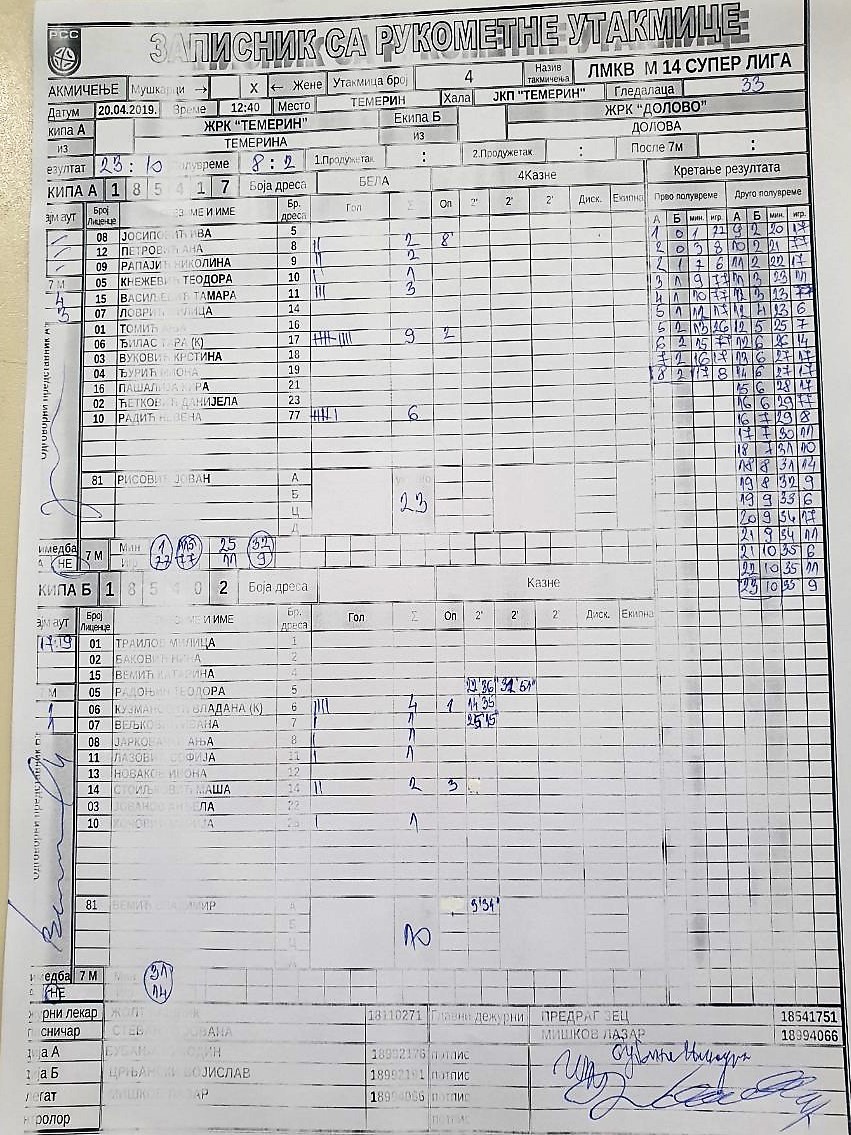 РСС
ЗАПИСНИК СА РУКОМЕТНЕ УТАКМИЦЕ
АКМИЧЕЊЕ Мушкарци → X ← Жене Утакмица број 4 Назив такмичења ЛМКВ М 14 СУПЕР ЛИГА
Датум 20.04.2019. Време 12:40 Место ТЕМЕРИН Хала ЈКП "ТЕМЕРИН" Гледалаца 33
кипа А ЖРК "ТЕМЕРИН" Екипа Б ЖРК "ДОЛОВО"
из ТЕМЕРИНА из ДОЛОВА
езултат 23 : 10 полувреме 8 : 2 1.Продужетак : 2.Продужетак : После 7м :
КИПА А 1 8 5 4 1 7 Боја дреса БЕЛА 4Казне Кретање резултата
Прво полувреме Друго полувреме
ајм аут Број Лиценце ЗИМЕ И ИМЕ Бр. дреса Гол Σ Оп 2' 2' 2' Диск. Екипна А Б мин. игр. А Б мин. игр.
08 ЈОСИПОВИЋ ИВА 5
12 ПЕТРОВИЋ АНА 8 || 2 8'
09 РАПАЈИЋ НИКОЛИНА 9 || 2
7 М 05 КНЕЖЕВИЋ ТЕОДОРА 10 | 1
4 15 ВАСИЉЕВИЋ ТАМАРА 11 ||| 3
3 07 ЛОВРИЋ МИЛИЦА 14
01 ТОМИЋ 16
06 ЂИЛАС ТАРА (К) 17 9 2
03 ВУКОВИЋ КРСТИНА 18
04 ЂУРИЋ МИОНА 19
16 ПАШАЛИЋ 21
02 ЋЕТКОВИЋ ДАНИЈЕЛА 23
10 РАДИЋ НЕВЕНА 77 6
1 0 1 22 9 2 20 17
2 0 3 8 10 2 21 77
2 1 7 6 11 2 22 17
3 1 9 77 11 3 23 11
4 1 10 77 12 3 23 77
5 1 12 17 12 4 23 6
5 2 13 26 12 5 25 7
6 2 15 77 12 6 26 14
7 2 16 17 13 6 27 17
8 2 17 8 14 6 27 17
15 6 28 17
16 6 29 77
16 7 29 8
17 7 30 11
18 7 31 10
18 8 31 14
19 8 32 9
19 9 33 6
20 9 34 17
21 9 34 11
21 10 35 6
22 10 35 11
23 10 35 9
81 РИСОВИЋ ЈОВАН А
Б
Ц 23
Д
имедба 7 М Мин 1 15 25 32
А НЕ игр. 77 77 11 9
КИПА Б 1 8 5 4 0 2 Боја дреса Казне
ајм аут Број Лиценце ЗИМЕ И ИМЕ Бр. дреса Гол Σ Оп 2' 2' 2' Диск. Екипна
17:19 01 ТРАИЛОВ МИЛИЦА 1
02 БАКОВИЋ НИНА 2
15 ВЕМИЋ КАТАРИНА 4
7 М 05 РАДОЊИН ТЕОДОРА 5 22'36 32'51"
1 06 КУЗМАНОВИЋ ВЛАДАНА (К) 6 |||| 4 1 14'35
1 07 7 | 1 25'15"
08 ЈАРКОВАЧКИ АЊА 8 | 1
11 ЛАЗОВИЋ СОФИЈА 11 | 1
13 НОВАКОВ ИВОНА 12
14 СТОИЉКОВИЋ МАША 14 || 2 3
03 22
10 | 1
81 ВЕМИЋ ВЛАДИМИР А 9'34"
Б
Ц 10
имедба 7 М Мин 31
НЕ 14
журни лекар 18110271 Главни дежурни ПРЕДРАГ ЗЕЦ 18541751
писничар МИШКОВ ЛАЗАР 18994066
дија А потпис
дија Б ЦРЊАНСКИ ВОЈИСЛАВ потпис
легат МИШКОВ ЛАЗАР 18994066 потпис
нтролор потпис